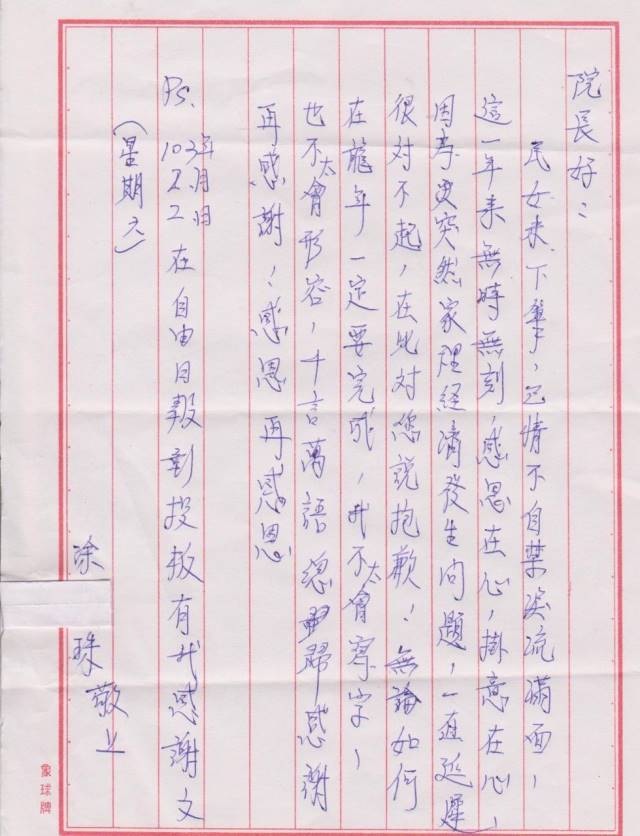 院長好：
民女未下筆，已情不自禁淚流滿面，
這一年來無時無刻，感恩在心，掛意在心，
因為突然家理經濟發生問題，一直延遲
很對不起，在此對您說抱歉！無論如何
在龍年一定要完成，我不太會寫字，
也不太會形容，千言萬語總歸感謝
再感謝！感恩再感恩
Ps.
103年2月2日在自由日報彰投版有我感謝文
（星期六）
涂
珠敬上
象球牌